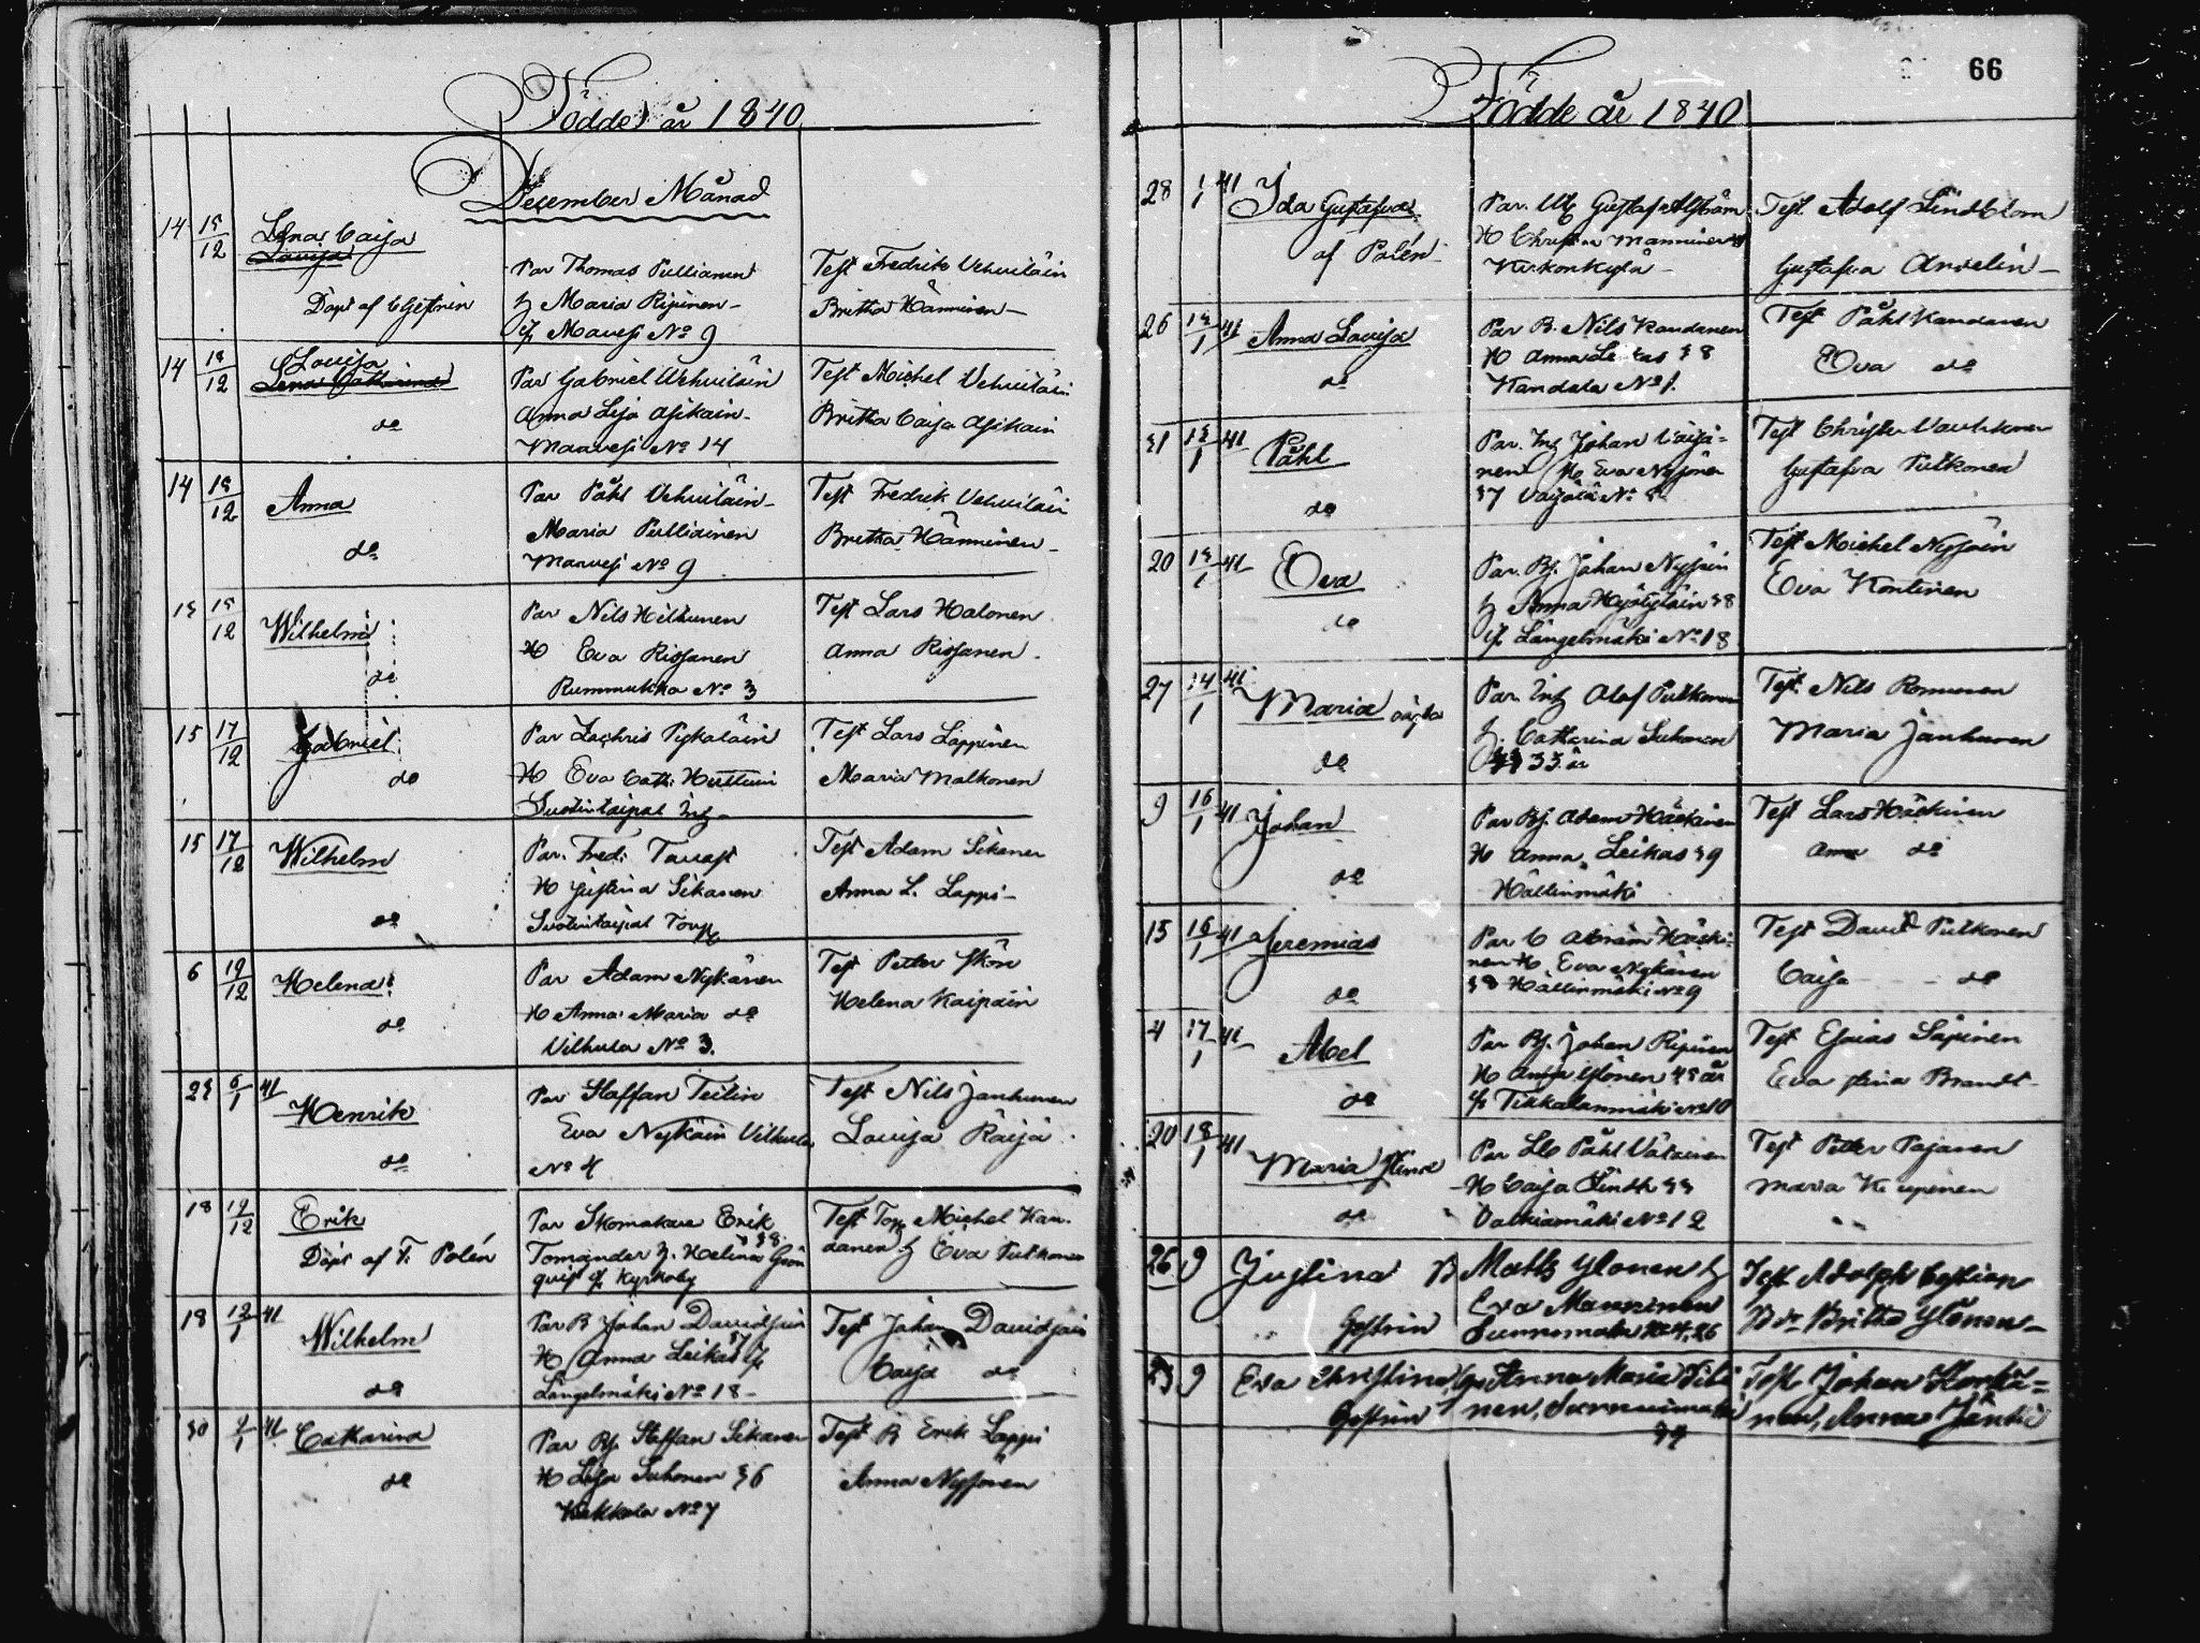 Födde år 1840
December Månad
14 15/12 Lena Caisa
Lovisa
Döpt af C Gestrin
Par Thomas Pulliainen
h Maria Ripinen
if Mavesi No 9
Test Fredrik Vehviläin
Britha Hänninen
14 18/12 Lovisa
Lena Catharina
do
Par Gabriel Wehviläin
Anna Lisa Asikain
Maavesi No 14
Test Michel Vehviläin
Britha Caisa Asikain
14 15/12 Anna
do
Par Påhl Vehviläin
Maria Pulliainen
Mavesi No 9
Test Fredrik Vehviläin
Britha Hänninen
15/12 Wilhelm
do
Par Nils Hilthunen
H Eva Rissanen
Rummukka No 3
Test Lars Halonen
Anna Rissanen
15 17/12 Gabriel
do
Par Zachris Pykäläin
H Eva Cath:
Sustintaipal Inh
Test Lars Lappinen
Maria Malkonen
15 17/12 Wilhelm
do
Par. Fred: Tavast
H Justina Sikanen
Suotintaipal Torp
Test Adam Sikanen
Anna L. Lappi
6 19/12 Helena
do
Par Adam Nykänen
H Anna Maria do
Vilhula No 3.
Test Petter Skön
Helena Kaipain
6/1 41 Henrik
do
Par Staffan Teilin
Eva Nykäin Vilhula
No 4
Test Nils Janhunen
Lovisa Räisä
18 19/12 Erik
Döpt af F. Polén
Par Skomakare Erik
Tomander h. Helena Grön
quist if Kyrkoby
Test Torp Michel Kan
danen h Eva Putkonen
18 12/1 41 Wilhelm
do
Par B Johan Davidsain
H Anna Leikas 37 if
Längelmäki No 18
Test Johan Davidsain
Caisa do
30 41 Catharina
do
Par Bf. Staffan Sikanen
H Lisa Suhonen 36
Kukkola No 7
Test B Erik Lappi
Anna Nyssonen
66
Födde år 1840
28 1/1 41 Ida Gustafva
af Polén
Par. Gustaf Alstöm
H Christina Manninen
Kirkonkylä
Test. Adolf Lindblom
Gustafva Anselin
26 41 Anna Lovisa
do
Par B. Nils Kandanen
H Anna Leikas 38
Kandala No 1.
Test Påhl Kandanen
Eva do
31 41 Påhl
do
Par. Inh Johan Väisä=
nen H Eva Nyssönen
37 Väisälä No 8
Test Christer
Gustafva Putkonen
20 41 Eva
do
Par. Bf. Johan Nyssöin
h Anna 38
if Längelmäki No 18
Test Michel Nyssöin
Eva Kontinen
27 14/1 41 Maria
do
Par Inh Olof Putkonen
h. Catharina Suhonen
33 år
Test. Nils Romunen
Maria Janhunen
9 16/1 41 Johan
do
Par Bf. Adam Häckinen
H Anna Leikas 39
Hällinmäki
Test Lars Häckinen
Anna do
15 16/1 41 Jeremias
do
Par Abram Häcki
nen H Eva Nykänen
38 Hällinmäki No 9
Test David Putkonen
Caisa do
4 17/1 41 Abel
do
Par Bf. Johan Ripinen
H Ylönen år
if Tikkalanmäki No 10
Test Esaias Säpinen
Eva Stina Brandt
20 18/1 41 Maria Stina
do
Par Påhl Vatainen
H Caisa Lindh 33
Valkiamäki No 12
Test Petter Pajanen
Maria
26 9 Justina
Gestrin
B Matts Ylönen h
Eva Manninen
Sunnumäki No 4, 26
Test Adolph
Britha Ylönen
23 9 Eva Christina
Gestrin
Anna Maria
nen, Sunnumäki
39
Test Johan
nen, Anna Jäntti